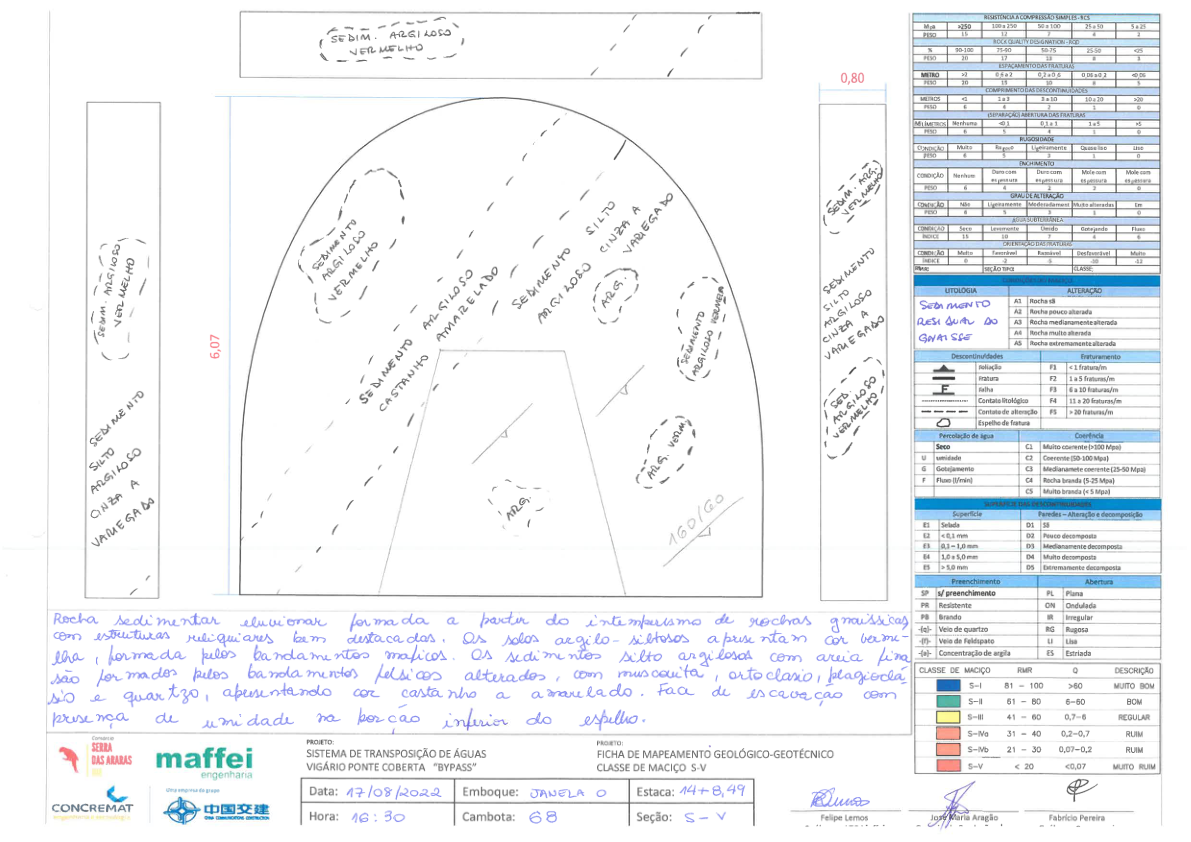 SEDIM. ARGILOSO
VERMELHO
0,80
6,07
SEDIM. ARGILOSO
VERMELHO
SEDIMENTO
SILTO
ARGILOSO
CINZA A
VARIEGADO
SEDIMENTO
ARGILOSO
VERMELHO
SEDIMENTO ARGILOSO
CASTANHO AMARELADO
SEDIMENTO SILTO
ARGILOSO CINZA A
VARIEGADO
ARG.
SEDIMENTO
ARGILOSO VERMELHO
ARG. VERM.
ARG.
160/60
SEDIM. ARG.
VERMELHO
SEDIMENTO
SILTO
ARGILOSO
CINZA A
VARIEGADO
SED.
ARGILOSO
VERMELHO
RESISTÊNCIA A COMPRESSÃO SIMPLES - RCS
MPa >250 100 a 250 50 a 100 25 a 50 5 a 25
PESO 15 12 7 4 2
ROCK QUALITY DESIGNATION - RQD
% 90-100 75-90 50-75 25-50 <25
PESO 20 17 13 8 3
ESPAÇAMENTO DAS FRATURAS
METRO >2 0,6 a 2 0,2 a 0,6 0,06 a 0,2 <0,06
PESO 20 15 10 8 5
COMPRIMENTO DAS DESCONTINUIDADES
METROS <1 1 a 3 3 a 10 10 a 20 >20
PESO 6 4 2 1 0
(SEPARAÇÃO) ABERTURA DAS FRATURAS
MILÍMETROS Nenhuma <0,1 0,1 a 1 1 a 5 >5
PESO 6 5 4 1 0
RUGOSIDADE
CONDIÇÃO Muito Rugoso Ligeiramente Quase liso Liso
PESO 6 5 3 1 0
ENCHIMENTO
CONDIÇÃO Nenhum Duro com espessura Duro com espessura Mole com espessura Mole com espessura
PESO 6 4 2 2 0
GRAU DE ALTERAÇÃO
CONDIÇÃO Não Ligeiramente Moderadament Muito alteradas Em
PESO 6 5 3 1 0
ÁGUA SUBTERRÂNEA
CONDIÇÃO Seco Levemente Úmido Gotejando Fluxo
ÍNDICE 15 10 7 4 0
ORIENTAÇÃO DAS FRATURAS
CONDIÇÃO Muito Favorável Razoável Desfavorável Muito
ÍNDICE 0 -2 -5 -10 -12
RMR: SEÇÃO TIPO: CLASSE:
LITOLOGIA ALTERAÇÃO
SEDIMENTO
RESIDUAL DO
GNAISSE
A1 Rocha sã
A2 Rocha pouco alterada
A3 Rocha medianamente alterada
A4 Rocha muito alterada
A5 Rocha extremamente alterada
Descontinuidades Faturamento
Foliação F1 < 1 fratura/m
Fratura F2 1 a 5 fraturas/m
F Falha F3 6 a 10 fraturas/m
Contato litológico F4 11 a 20 fraturas/m
Contato de alteração F5 > 20 fraturas/m
Espelho de fratura
Percolação de água Coerência
Seco C1 Muito coerente (>100 Mpa)
U umidade C2 Coerente (50-100 Mpa)
G Gotejamento C3 Medianamete coerente (25-50 Mpa)
F Fluxo (l/min) C4 Rocha branda (5-25 Mpa)
C5 Muito branda (< 5 Mpa)
SUPERFÍCIE DAS DESCONTINUIDADES
Superfície Paredes – Alteração e decomposição
E1 Selada D1 Sã
E2 < 0,1 mm D2 Pouco decomposta
E3 0,1 – 1,0 mm D3 Medianamente decomposta
E4 1,0 a 5,0 mm D4 Muito decomposta
E5 > 5,0 mm D5 Extremamente decomposta
Preenchimento Abertura
SP s/ preenchimento PL Plana
PR Resistente ON Ondulada
PB Brando IR Irregular
-(q)- Veio de quartzo RG Rugosa
-(f)- Veio de Feldspato LI Lisa
-(a)- Concentração de argila ES Estriada
CLASSE DE MACIÇO RMR Q DESCRIÇÃO
S-I 81 – 100 >60 MUITO BOM
S-II 61 – 80 6–60 BOM
S-III 41 – 60 0,7-6 REGULAR
S-IVa 31 – 40 0,2-0,7 RUIM
S-IVb 21 – 30 0,07-0,2 RUIM
S-V < 20 <0,07 MUITO RUIM
Rocha sedimentar eluvionar formada a partir do intemperismo de rochas gnaissicas
com estruturas reliquiares bem destacadas. Os solos argilo-siltosos apresentam cor verme-
lha, formada pelos bandamentos maficos. Os sedimentos silto argilosos com areia fina
são formados pelos bandamentos felsicos alterados, com muscovita, ortoclasio, plagioclá-
sio e quartzo, apresentando cor castanho a amarelado. Face de escavação com
presença de umidade na porção inferior do espelho.
Consórcio
SERRA
DAS ARARAS
maffei
engenharia
CONCREMAT
engenharia e tecnologia
Uma empresa do grupo
中国交建
CHINA COMMUNICATIONS CONSTRUCTION
PROJETO:
SISTEMA DE TRANSPOSIÇÃO DE ÁGUAS
VIGÁRIO PONTE COBERTA "BYPASS"
PROJETO:
FICHA DE MAPEAMENTO GEOLÓGICO-GEOTÉCNICO
CLASSE DE MACIÇO S-V
Data: 17/08/2022 Emboque: JANELA O Estaca: 14+8,49
Hora: 16:30 Cambota: 68 Seção: S-V
Felipe Lemos
José Maria Aragão
Fabrício Pereira